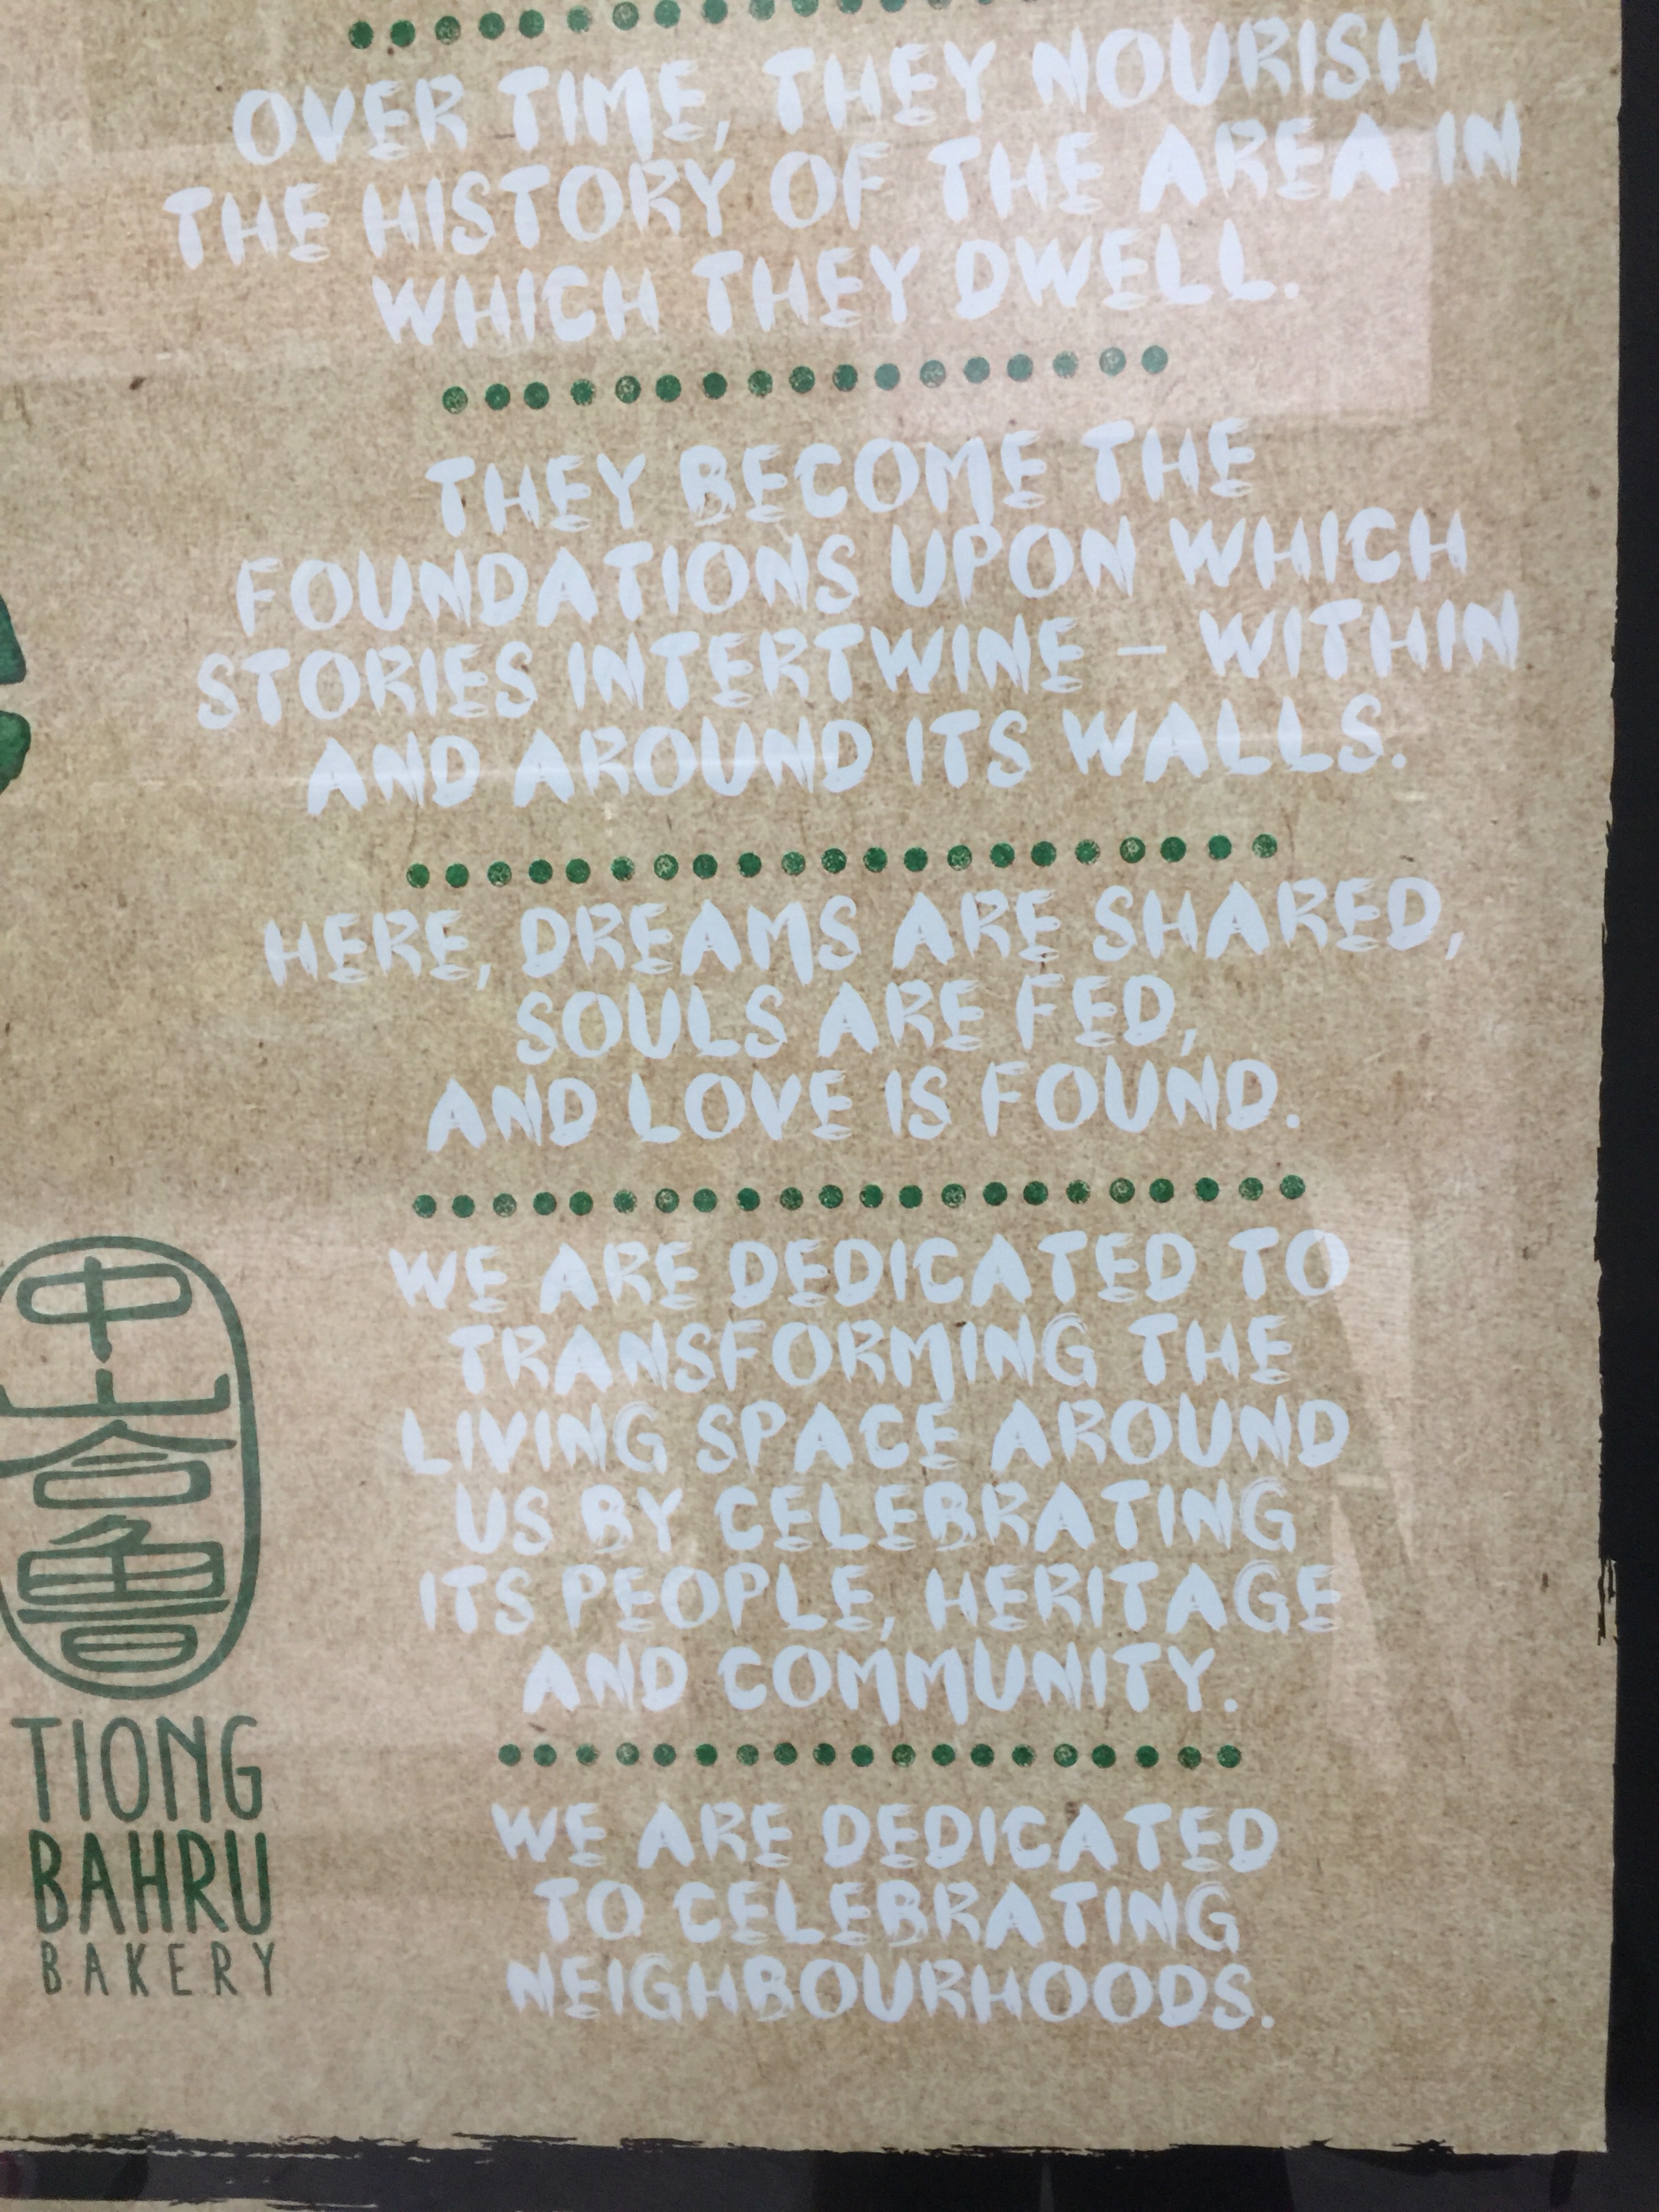 OVER TIME, THEY NOURISH
THE HISTORY OF THE AREA IN
WHICH THEY DWELL.
THEY BECOME THE
FOUNDATIONS UPON WHICH
STORIES INTERTWINE – WITHIN
AND AROUND ITS WALLS.
HERE, DREAMS ARE SHARED,
SOULS ARE FED,
AND LOVE IS FOUND.
WE ARE DEDICATED TO
TRANSFORMING THE
LIVING SPACE AROUND
US BY CELEBRATING
ITS PEOPLE, HERITAGE
AND COMMUNITY.
WE ARE DEDICATED
TO CELEBRATING
NEIGHBOURHOODS.
中
峇
鲁
TIONG
BAHRU
BAKERY